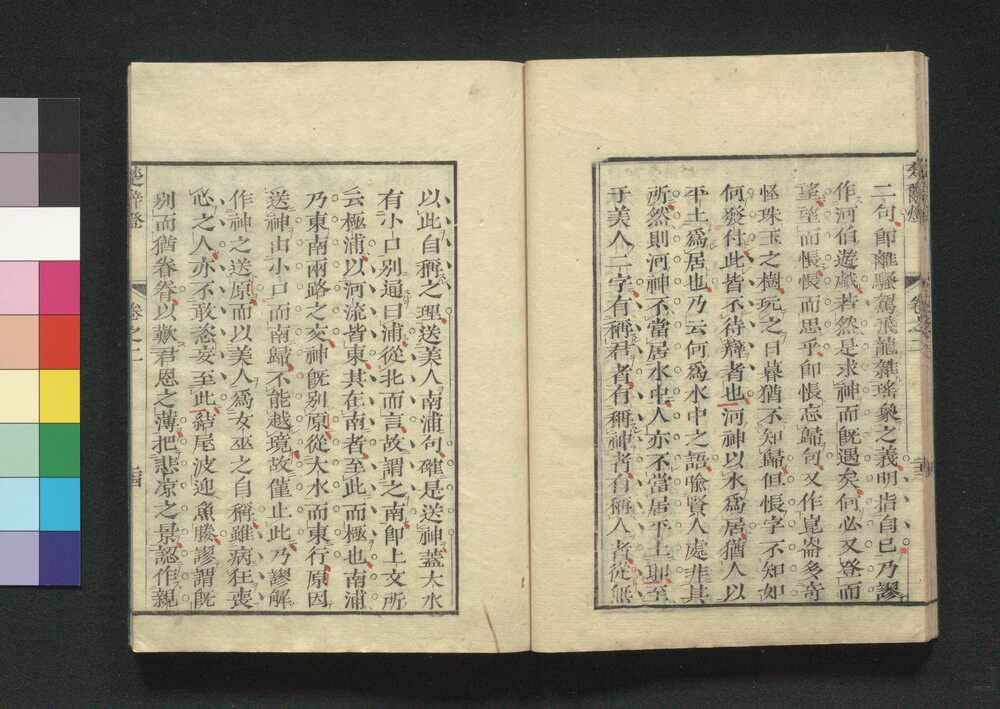 二句卽離騷駕飛龍雜瑤象之義明指自己乃謬
作河伯遊戲若然是求神而旣遇矣何必又登而
望望而悵悵而思乎卽悵忘歸句又作崑崙多奇
怪珠玉之樹玩之日暮猶不知歸但悵字不知如
何發付此皆不待辯者也河神以水爲居猶人以
平土爲居也乃云何爲水中之語喻賢人處非其
所然則河神不當居水中人亦不當居平土耶至
于美人二字有稱君者有稱神者有稱人者從無
以此自稱之理送美人南浦句確是送神蓋大水
有小口别通曰浦從北而言故謂之南卽上文所
云極浦以河流皆東其在南者至此而極也南浦
乃東南兩路之交神旣别原從大水而東行原因
送神由小口而南歸不能越境故僅止此乃謬解
作神之送原而以美人爲女巫之自稱雖病狂喪
心之人亦不敢恣妄至此結尾波迎魚媵謬謂旣
别而猶眷眷以歎君恩之薄把悲凉之景認作親
楚辭燈
卷之二